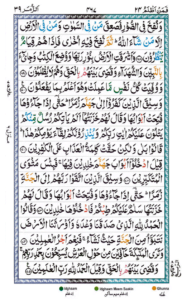 وَنُفِخَ فِي الصُّوْرِ فَصَعِقَ مَنْ فِي السَّمٰوٰتِ وَمَنْ فِي الْاَرْضِ
اِلَّا مَنْ شَآءَ اللّٰهُ ثُمَّ نُفِخَ فِيْهِ اُخْرٰى فَاِذَا هُمْ قِيَامٌ
يَّنْظُرُوْنَ وَاَشْرَقَتِ الْاَرْضُ بِنُوْرِ رَبِّهَا وَوُضِعَ الْكِتٰبُ وَجِايْٓءَ
بِالنَّبِيّٖنَ وَالشُّهَدَآءِ وَقُضِيَ بَيْنَهُمْ بِالْحَقِّ وَهُمْ لَا يُظْلَمُوْنَ
وَوُفِّيَتْ كُلُّ نَفْسٍ مَّا عَمِلَتْ وَهُوَ اَعْلَمُ بِمَا يَفْعَلُوْنَ
وَسِيْقَ الَّذِيْنَ كَفَرُوْٓا اِلٰى جَهَنَّمَ زُمَرًا حَتّٰٓى اِذَا جَآءُوْهَا
فُتِحَتْ اَبْوَابُهَا وَقَالَ لَهُمْ خَزَنَتُهَآ اَلَمْ يَاْتِكُمْ رُسُلٌ مِّنْكُمْ
يَتْلُوْنَ عَلَيْكُمْ اٰيٰتِ رَبِّكُمْ وَيُنْذِرُوْنَكُمْ لِقَآءَ يَوْمِكُمْ هٰذَا
قَالُوْا بَلٰى وَلٰكِنْ حَقَّتْ كَلِمَةُ الْعَذَابِ عَلَى الْكٰفِرِيْنَ
قِيْلَ ادْخُلُوْٓا اَبْوَابَ جَهَنَّمَ خٰلِدِيْنَ فِيْهَا فَبِئْسَ مَثْوَى
الْمُتَكَبِّرِيْنَ وَسِيْقَ الَّذِيْنَ اتَّقَوْا رَبَّهُمْ اِلَى الْجَنَّةِ
زُمَرًا حَتّٰٓى اِذَا جَآءُوْهَا وَفُتِحَتْ اَبْوَابُهَا وَقَالَ لَهُمْ
خَزَنَتُهَا سَلٰمٌ عَلَيْكُمْ طِبْتُمْ فَادْخُلُوْهَا خٰلِدِيْنَ وَقَالُوا
الْحَمْدُ لِلّٰهِ الَّذِيْ صَدَقَنَا وَعْدَهٗ وَاَوْرَثَنَا الْاَرْضَ
نَتَبَوَّاُ مِنَ الْجَنَّةِ حَيْثُ نَشَآءُ فَنِعْمَ اَجْرُ الْعٰمِلِيْنَ
وَتَرَى الْمَلٰٓئِكَةَ حَآفِّيْنَ مِنْ حَوْلِ الْعَرْشِ يُسَبِّحُوْنَ بِحَمْدِ رَبِّهِمْ
وَقُضِيَ بَيْنَهُمْ بِالْحَقِّ وَقِيْلَ الْحَمْدُ لِلّٰهِ رَبِّ الْعٰلَمِيْنَ